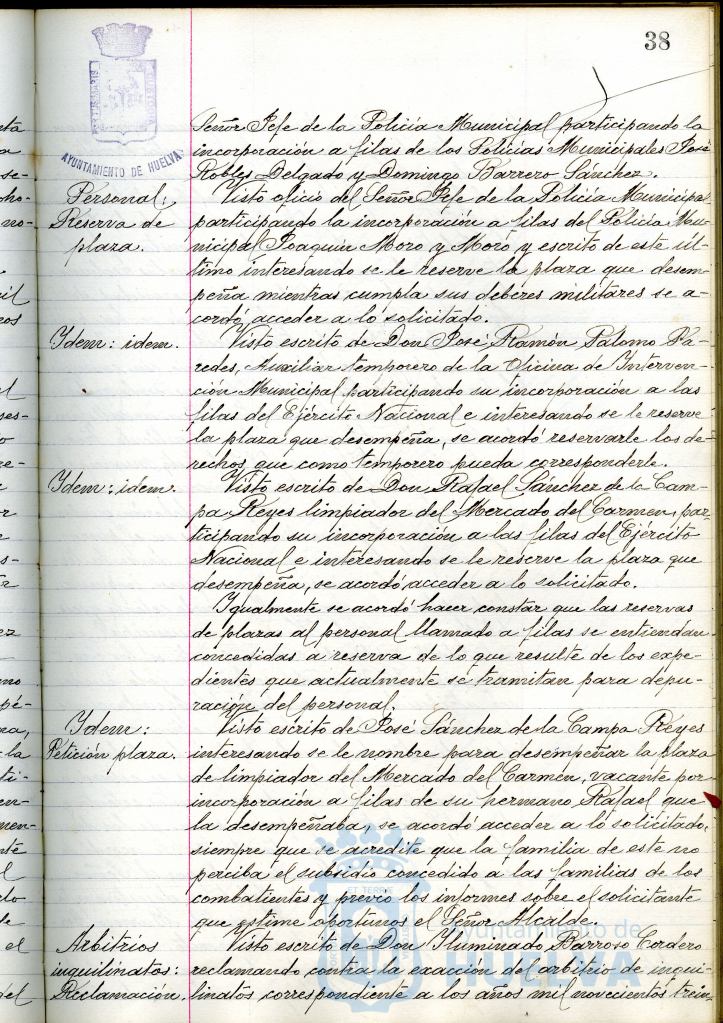 38
AYUNTAMIENTO DE HUELVA
Señor Jefe de la Policía Municipal participando la
incorporación a filas de los Policías Municipales José
Robles Delgado y Domingo Barrero Sánchez.
Personal:
Reserva de
plaza.
Visto oficio del Señor Jefe de la Policía Municipal
participando la incorporación a filas del Policía Mu-
nicipal Joaquín Moro y Moro y escrito de este úl-
timo interesando se le reserve la plaza que desem-
peña mientras cumpla sus deberes militares se a-
cordó acceder a lo solicitado.
Ydem: idem.
Visto escrito de Don José Ramón Palomo Pa-
redes, Auxiliar temporero de la Oficina de Interven-
ción Municipal participando su incorporación a las
filas del Ejército Nacional e interesando se le reserve
la plaza que desempeña, se acordó reservarle los de-
rechos que como temporero pueda corresponderle.
Ydem: idem.
Visto escrito de Don Rafael Sánchez de la Cam-
pa Reyes limpiador del Mercado del Carmen, par-
ticipando su incorporación a las filas del Ejército
Nacional e interesando se le reserve la plaza que
desempeña, se acordó acceder a lo solicitado.
Igualmente se acordó hacer constar que las reservas
de plazas al personal llamado a filas se entiendan
concedidas a reserva de lo que resulte de los expe-
dientes que actualmente se tramitan para depu-
ración del personal.
Ydem:
Petición plaza.
Visto escrito de José Sánchez de la Campa Reyes
interesando se le nombre para desempeñar la plaza
de limpiador del Mercado del Carmen, vacante por
incorporación a filas de su hermano Rafael que
la desempeñaba, se acordó acceder a lo solicitado,
siempre que se acredite que la familia de este no
perciba el subsidio concedido a las familias de los
combatientes y previo los informes sobre el solicitante
que estime oportunos el Señor Alcalde.
Arbitrios
inquilinatos:
Reclamación.
Visto escrito de Don Iluminado Barroso Cordero
reclamando contra la exacción del arbitrio de inqui-
linatos correspondiente a los años mil novecientos trein-
Ayuntamiento de
HUELVA